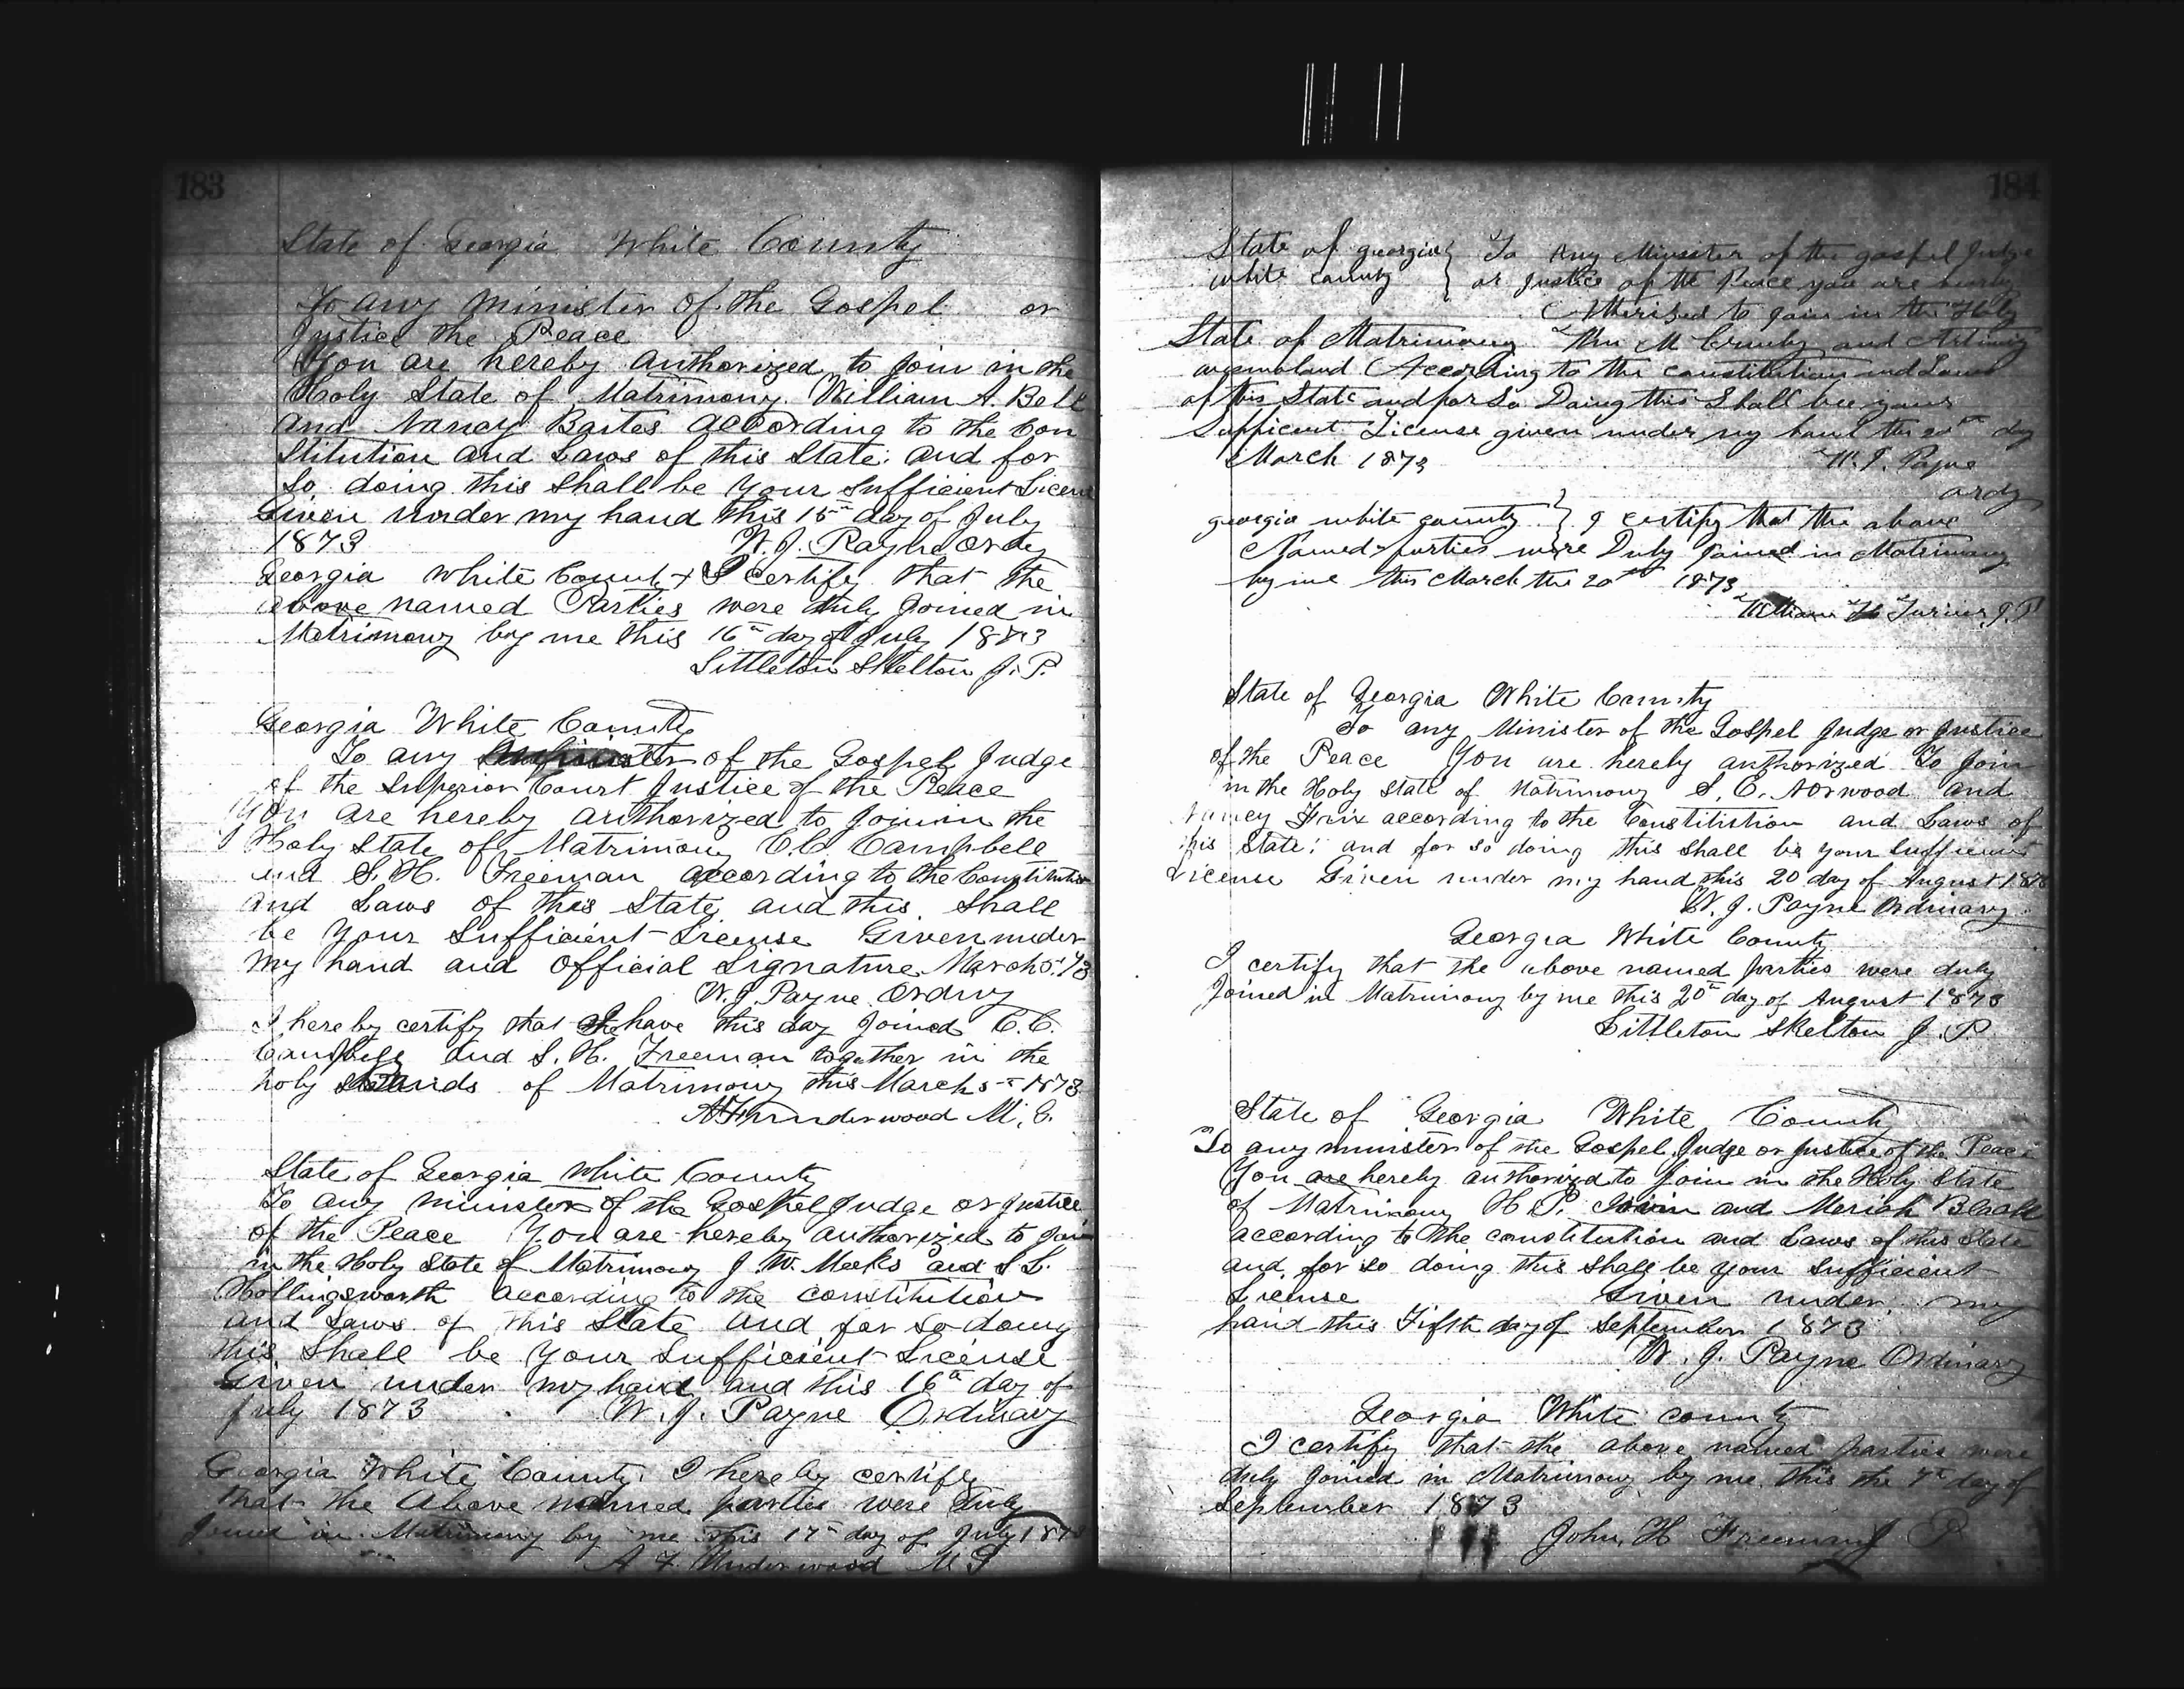 183
State of Georgia White County
To any minister of the Gospel or
Justice the Peace
You are hereby authorized to join in the
Holy State of Matrimony William A. Bell
and Nancy Bates according to the Con
stitution and Laws of this State: and for
so doing this shall be your sufficient Licens
Given under my hand this 15th day of July
1873 W. J. Payne Ordy
Georgia White County I certify that the
above named Parties were duly joined in
Matrimony by me this 16th day of July 1873
Littleton Skelton J. P.
Georgia White County
To any of the Gospel Judge
of the Superior Court Justice of the Peace
You are hereby authorized to join in the
Holy State of Matrimony C. C. Campbell
and S. H. Freeman according to the Constitution
and Laws of this State and this shall
be your sufficient License Given under
my hand and official signature March 5th 73
W. J. Payne Ordny
I hereby certify that I have this day joined C. C.
Campbell and S. H. Freeman together in the
holy bands of Matrimony this March 5th 1873
A F Underwood M. G.
State of Georgia White County
To any minister of the Gospel Judge or Justice
of the Peace You are hereby authorized to join
in the Holy State of Matrimony J. W. Meeks and S. L.
Hollingsworth according to the constitution
and Laws of this State and for so doing
this shall be your sufficient License
Given under my hand and this 16th day of
July 1873 W. J. Payne Ordinary
Georgia White County I hereby certify
that the above named parties were duly
joined in Matrimony by me this 17th day of July 1873
A F Underwood M G
184
State of georgia } To Any Minister of the gospel Judge
white county } or Justice of the Peace you are hereby
Atherised to join in the Holy
State of Matrimony M and
According to the constitution and Laws
of this State and for So Doing this Shall bee your
Sufficient License given under my hand this 20th day
March 1873 W. J. Payne
ordy
georgia white county } I certify that the above
Named parties were Duly joined in Matrimony
by me this March the 20th 1873
William J. P
State of Georgia White County
To any Minister of the Gospel Judge or Justice
of the Peace You are hereby authorized To join
in the Holy state of Matrimony S. E. Norwood and
Nancy Trix according to the Constitution and Laws of
this State; and for so doing this shall be your sufficient
License Given under my hand this 20 day of August 1873
W. J. Payne Ordinary
Georgia White County
I certify that the above named parties were duly
Joined in Matrimony by me this 20th day of August 1873
Littleton Skelton J. P.
State of Georgia White County
To any minister of the Gospel Judge or Justice of the Peace
You are hereby authorized to join in the Holy State
of Matrimony H. P. and Meriah Black
according to the constitution and Laws of this State
and for so doing this shall be your sufficient
License Given under my
hand this Fifth day of September 1873
W. J. Payne Ordinary
Georgia White county
I certify that the above named parties were
duly joined in Matrimony by me this the 7th day of
September 1873
John H Freeman J P